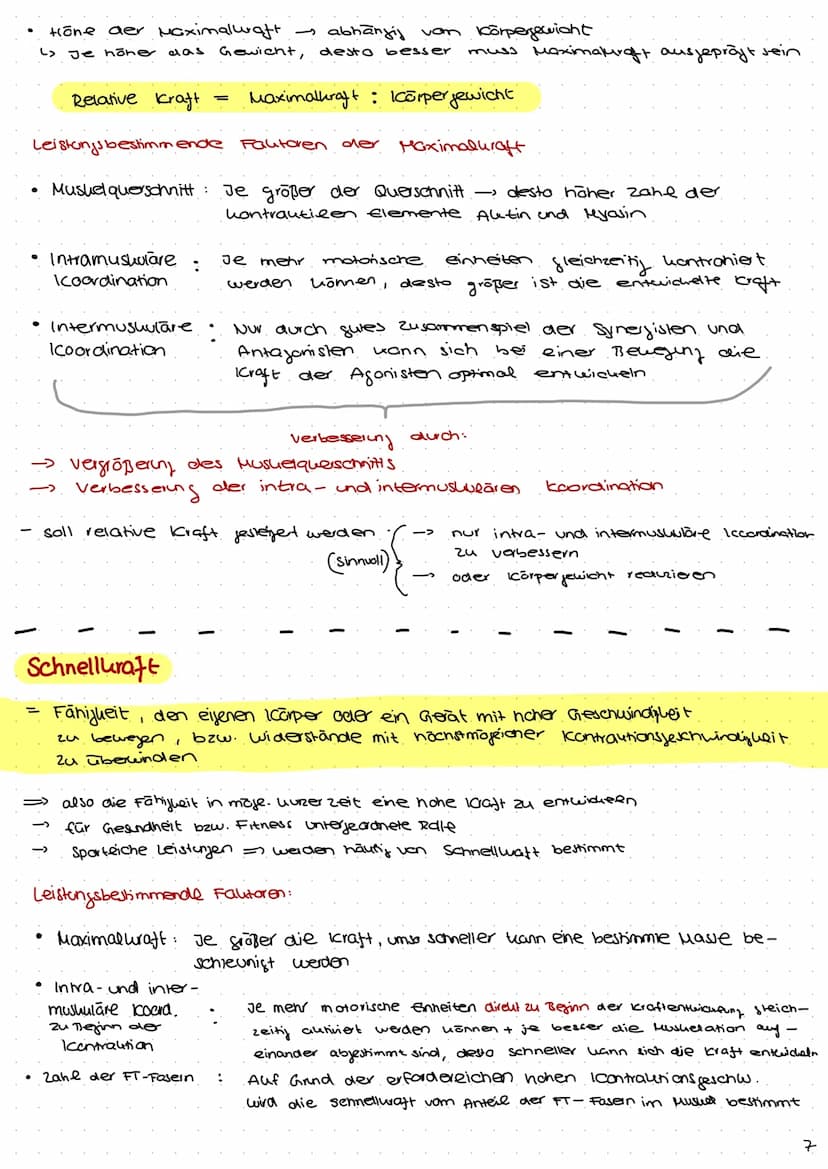 • Höhe der Maximalkraft → abhängig vom Körpergewicht
↳ Je höher das Gewicht, desto besser muss Maximalkraft ausgeprägt sein
Relative Kraft = Maximalkraft : Körpergewicht
Leistungsbestimmende Faktoren der Maximalkraft
• Muskelquerschnitt : Je größer der Querschnitt → desto höher Zahl der
kontraktilen Elemente Aktin und Myosin
• Intramuskuläre : Je mehr motorische einheiten gleichzeitig kontrahiert
Koordination werden können, desto größer ist die entwickelte Kraft
• Intermuskuläre : Nur durch gutes Zusammenspiel der Synergisten und
Koordination Antagonisten kann sich bei einer Bewegung die
Kraft der Agonisten optimal entwickeln
Verbesserung durch:
→ Vergrößerung des Muskelquerschnitts
→ Verbesserung der intra- und intermuskulären Koordination
- soll relative Kraft gesteigert werden : → nur intra- und intermuskuläre Koordination
zu verbessern
(sinnvoll)
→ oder Körpergewicht reduzieren
Schnellkraft
= Fähigkeit, den eigenen Körper oder ein Gerät mit hoher Geschwindigkeit
zu bewegen, bzw. Widerstände mit höchstmöglicher Kontraktionsgeschwindigkeit
zu überwinden
⇒ also die Fähigkeit in mögl. kurzer Zeit eine hohe Kraft zu entwickeln
→ für Gesundheit bzw. Fitness untergeordnete Rolle
→ Sportliche Leistungen ⇒ werden häufig von Schnellkraft bestimmt
Leistungsbestimmende Faktoren:
• Maximalkraft : Je größer die Kraft, umso schneller kann eine bestimme Masse be-
schleunigt werden
• Intra- und inter-
muskuläre Koord. : Je mehr motorische Einheiten direkt zu Beginn der Kraftentwicklung gleich-
zu Beginn der zeitig aktiviert werden können + je besser die Muskelation auf-
Kontraktion einander abgestimmt sind, desto schneller kann sich die Kraft entwickeln
• Zahl der FT-Fasern : Auf Grund der erforderlichen hohen Kontraktionsgeschw.
wird die Schnellkraft vom Anteil der FT-Fasern im Muskel bestimmt
7